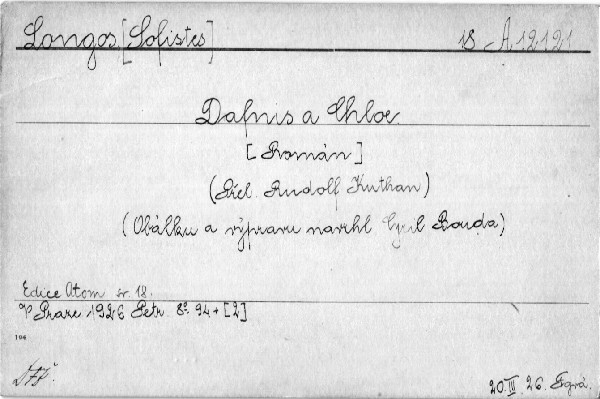 Longos [Sofistes] 18 A 12121
Dafnis a Chloe.
[Román]
(Přel. Rudolf Kuthan)
(Obálku a výpravu navrhl Cyril Bouda)
Edice Atom sv. 18.
V Praze 1926 Petr. 8° 94 + [2]
194
20. III. 26.